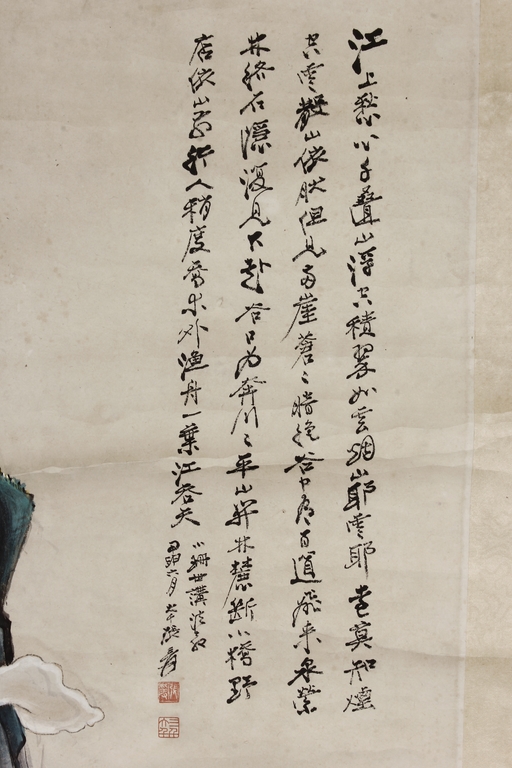 江上愁心千疊山浮空積翠如雲烟山耶雲耶遠莫知煙
空雲散山依然但見兩崖蒼〻暗絕谷中有百道飛來泉縈
林絡石隱復見下赴谷口為奔川〻平山開林麓斷小橋野
店依山前行人稍度喬木外漁舟一葉江吞天
小珊世講
卯六月大千張爰